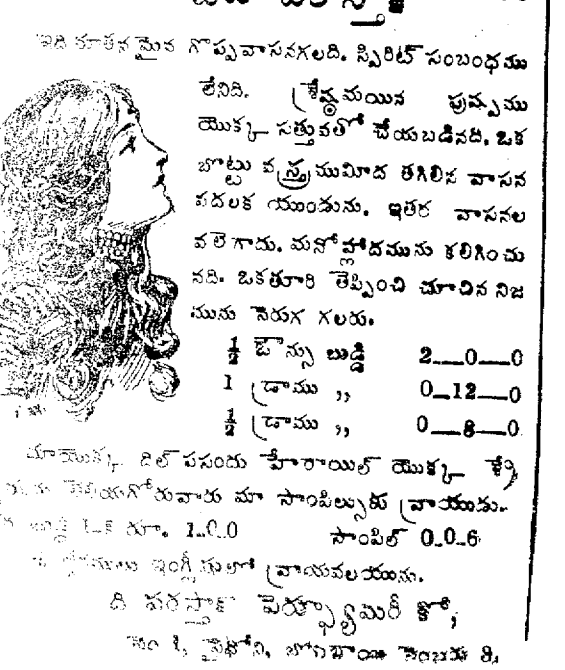 ఇది నూతన మైన గొప్పవాసనగలది. స్పిరిట్ సంబంధము
లేనిది. శ్రేష్ఠమయిన పుష్పము
యొక్క సత్తువతో చేయబడినది. ఒక
బొట్టు వస్త్రముమీద తగిలిన వాసన
వదలక యుండును. ఇతర వాసనల
వలెగాదు. మనోహ్లాదమును కలిగించు
నది. ఒకతూరి తెప్పించి చూచిన నిజ
మును నెరుగ గలరు.
½ ఔన్సు బుడ్డి 2—0—0
1 డ్రాము ,, 0—12—0
½ డ్రాము ,, 0—8—0
మాయొక్క దిల్ పసందు హేరాయిల్ యొక్క
తెలియగోరువారు మా సాంపిల్సుకు వ్రాయుడు.
బుడ్డి 1-కి రూ. 1..0..0 సాంపిల్ 0..0..6
ఇంగ్లీషులో వ్రాయవలయును.
ది పరస్తాక్ పెర్ఫ్యూమిరీ కో,
పైధోని, బొంబాయి